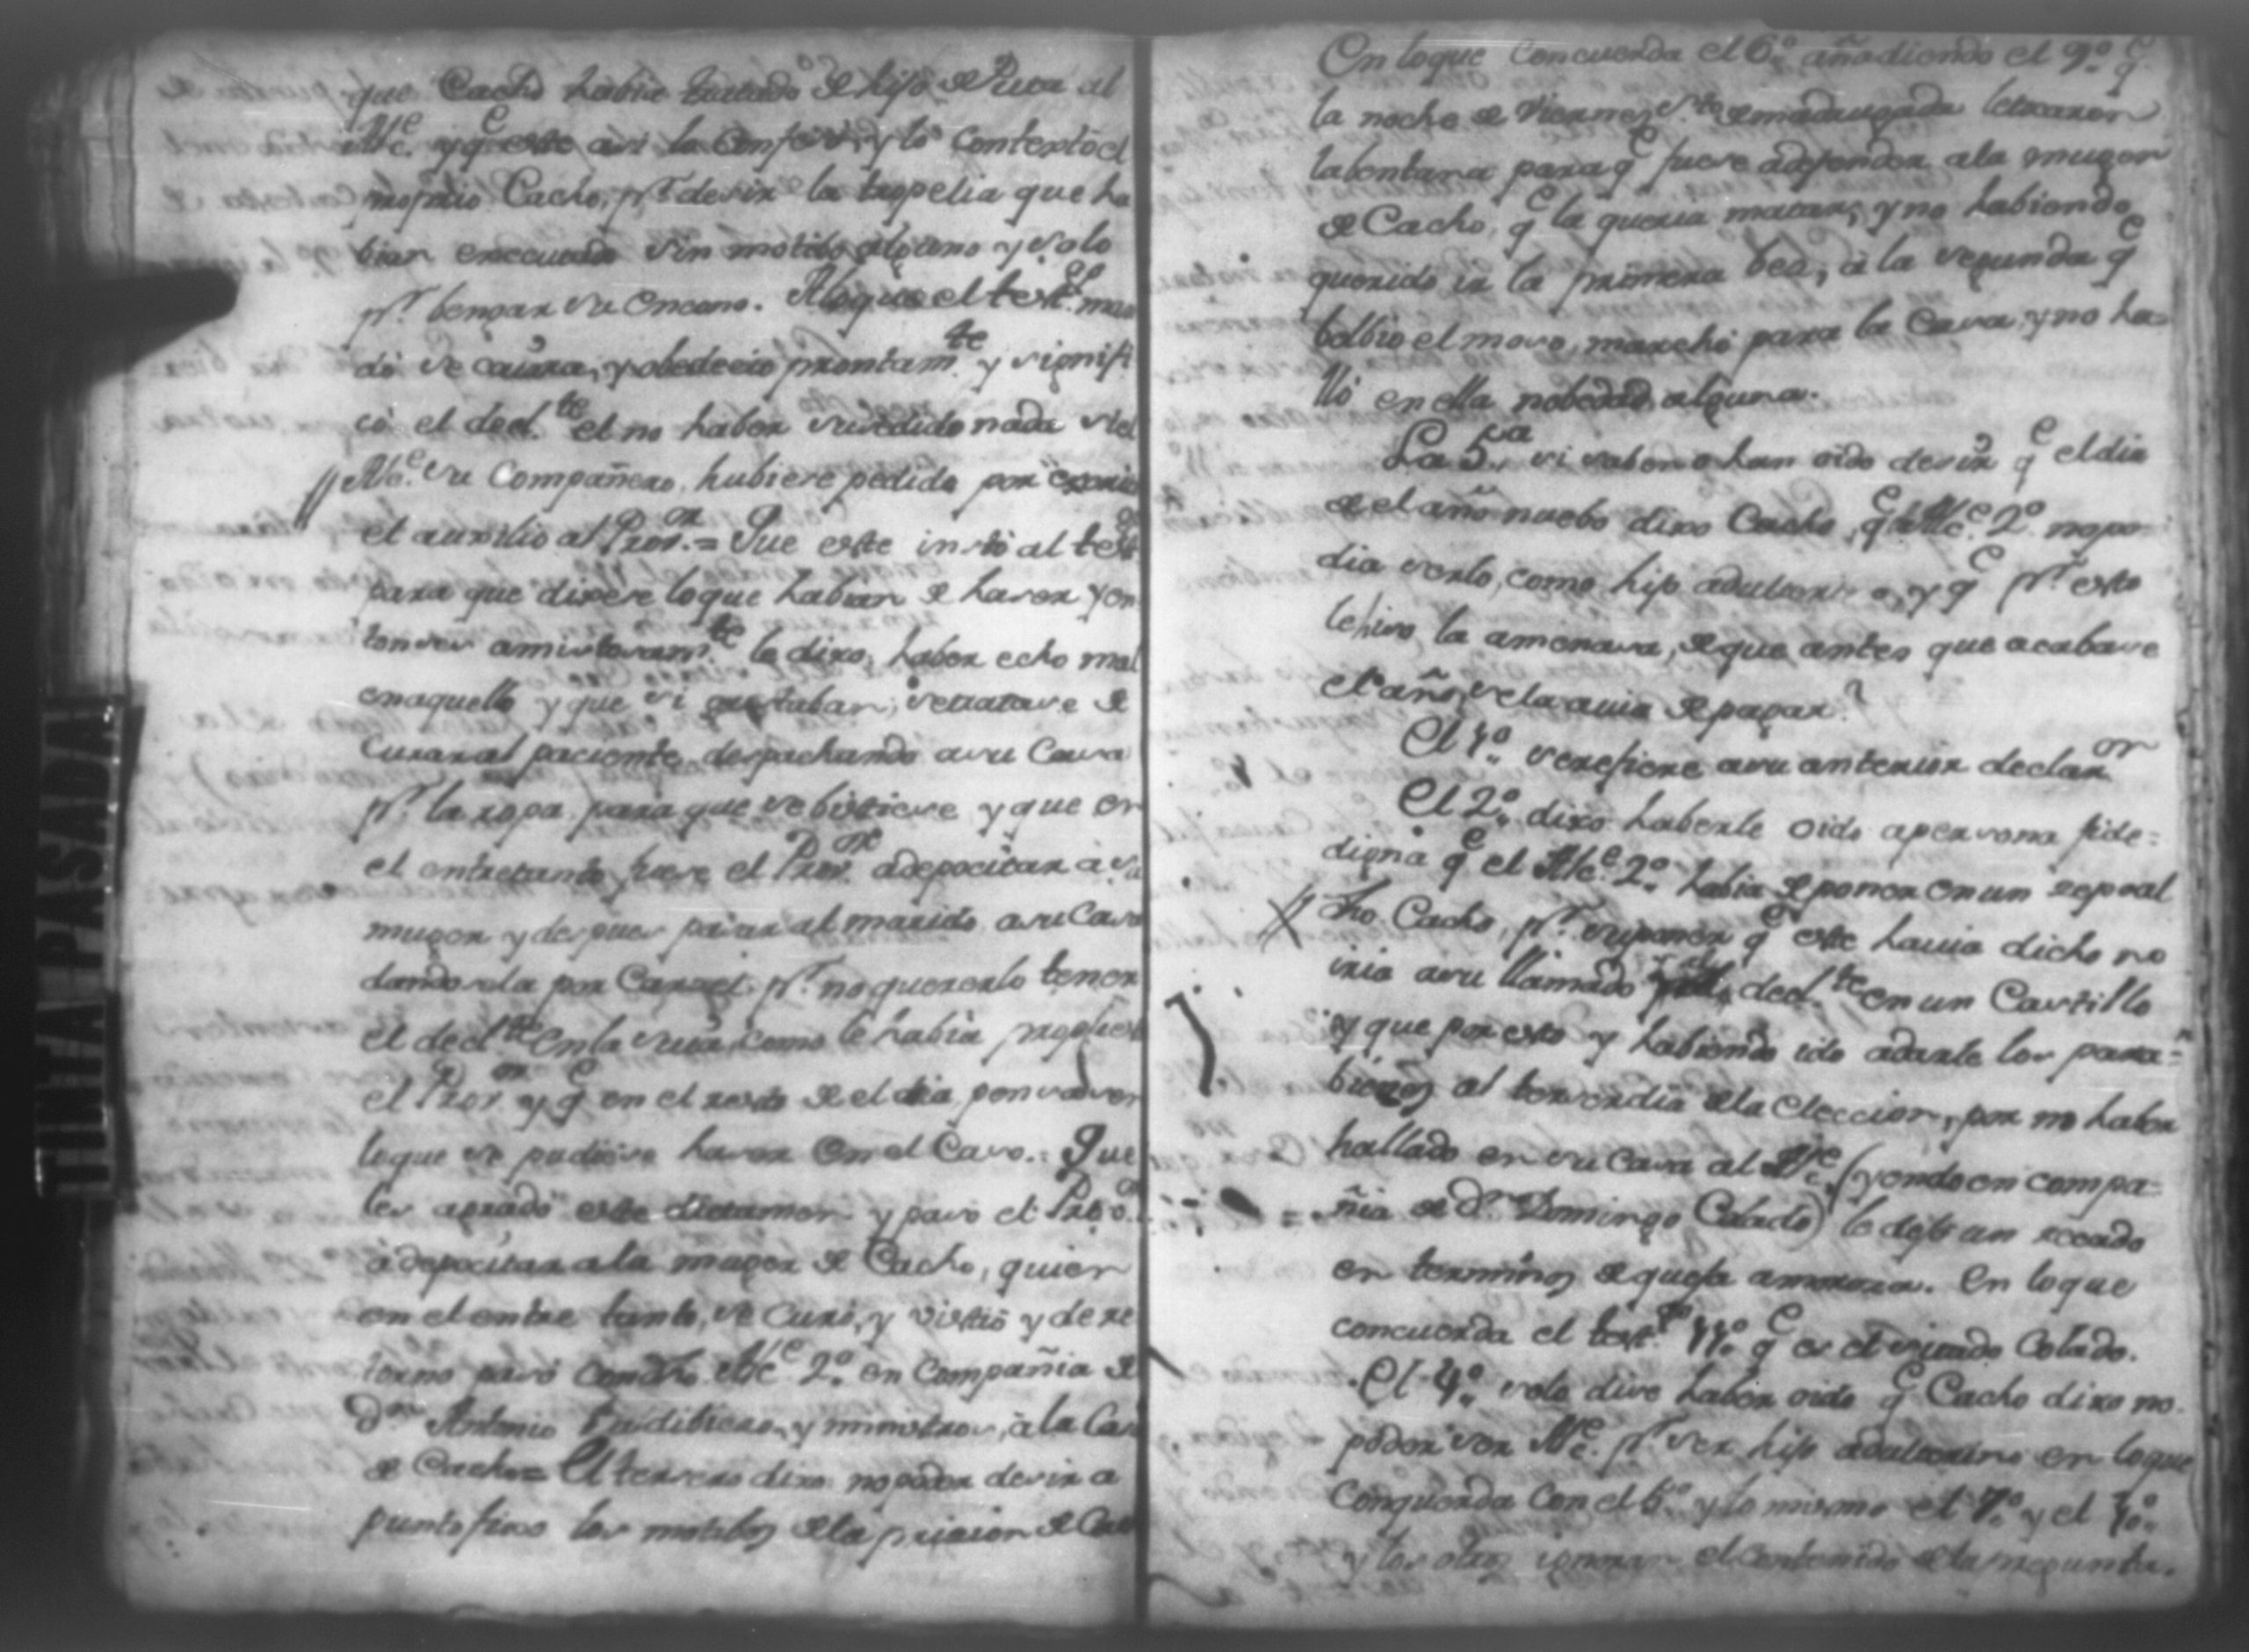 que Cacho habia tratado de hijo de Puta al
Alc.e y q.e este asi lo confesó, y lo contextó el
moprio Cacho, p.r desir la tropelia que ha
bian executado sin motibo alguno y solo
p.r bengar su encono. Aloque el test.go man
dó se curara, y obedecio prontam.te y signifi
có el decl.te el no haber susedido nada si el
Alc.e su Compañero, hubiere pedido por
el auxilio al Pror.or = Que este instó al test.go
para que dixese loque habian de haser y en
tonses amistosam.te le dixo, haber echo mal
en aquello y que si gustaban, setratase de
Curar al paciente despachando asu Casa
p.r la ropa para que sebistiese y que en
el entretanto fuese el Pror.or adepocitar a su
muger y despues pasar al marido asu Casa
dandosela por Carzel p.r no quererlo tener
el decl.te en la suia como le habia propuesto
el Pror.or y q.e en el resto de el dia pensasen
loque se pudiese haser en el Caso. = Que
les agradó este dictamen y pasó el Pror.or
adepocitar ala muger de Cacho, quien
en el entre tanto, se curó, y vistió y de re
torno pasó con dho Alc.e 2.o en Compañia de
d.n Antonio y ministros, á la Casa
de Cacho = El tersero dixo no poder desir a
punto fixo los motibos dela pricion de Cacho
En loque concuerda el 6.o añadiendo el 9.o q.e
la noche de Viernes S.to de madrugada le tocaron
labentana para q.e fuese adefender ala muger
de Cacho, q.e la queria matar, y no habiendo
querido ir la primera bes, á la segunda q.e
bolbio el moso, marchó para la Casa, y no ha=
lló en ella nobedad alguna.
La 5.a si saben o han oido desir q.e el dia
de el año nuebo dixo Cacho, q.e el Alc.e 2.o nopo
dia serlo, como hijo adulterino, y q.e p.r esto
lehiso la amenasa, de que antes que acabase
el año, se la auia de pagar?
El 1.o serefiere asu anterior declar.on
El 2.o dixo haberle oido apersona fide=
digna q.e el Alc.e 2.o habia deponer en un sepo al
dho. Cacho, p.r suponer q.e este hauia dicho no
iria asu llamado decl.te en un Castillo
y que por esto y habiendo ido adarle los para=
bienes al terser dia dela eleccion, por no haber
hallado en su casa al Alc.e (yendo en compa=
ñia de d.n Domingo Colado) le dejó un recado
en terminos de queja amorosa. En loque
concuerda el test.go 11.o q.e es el citado Colado.
El 4.o solo dise haber oido q.e Cacho dixo no
poder ser Alc.e p.r ser hijo adulterino en loque
Conquerda con el 6.o y lo mismo el 7.o y el 10.o
y los otros ignoran el contenido dela pregunta.
TILTA PASADA